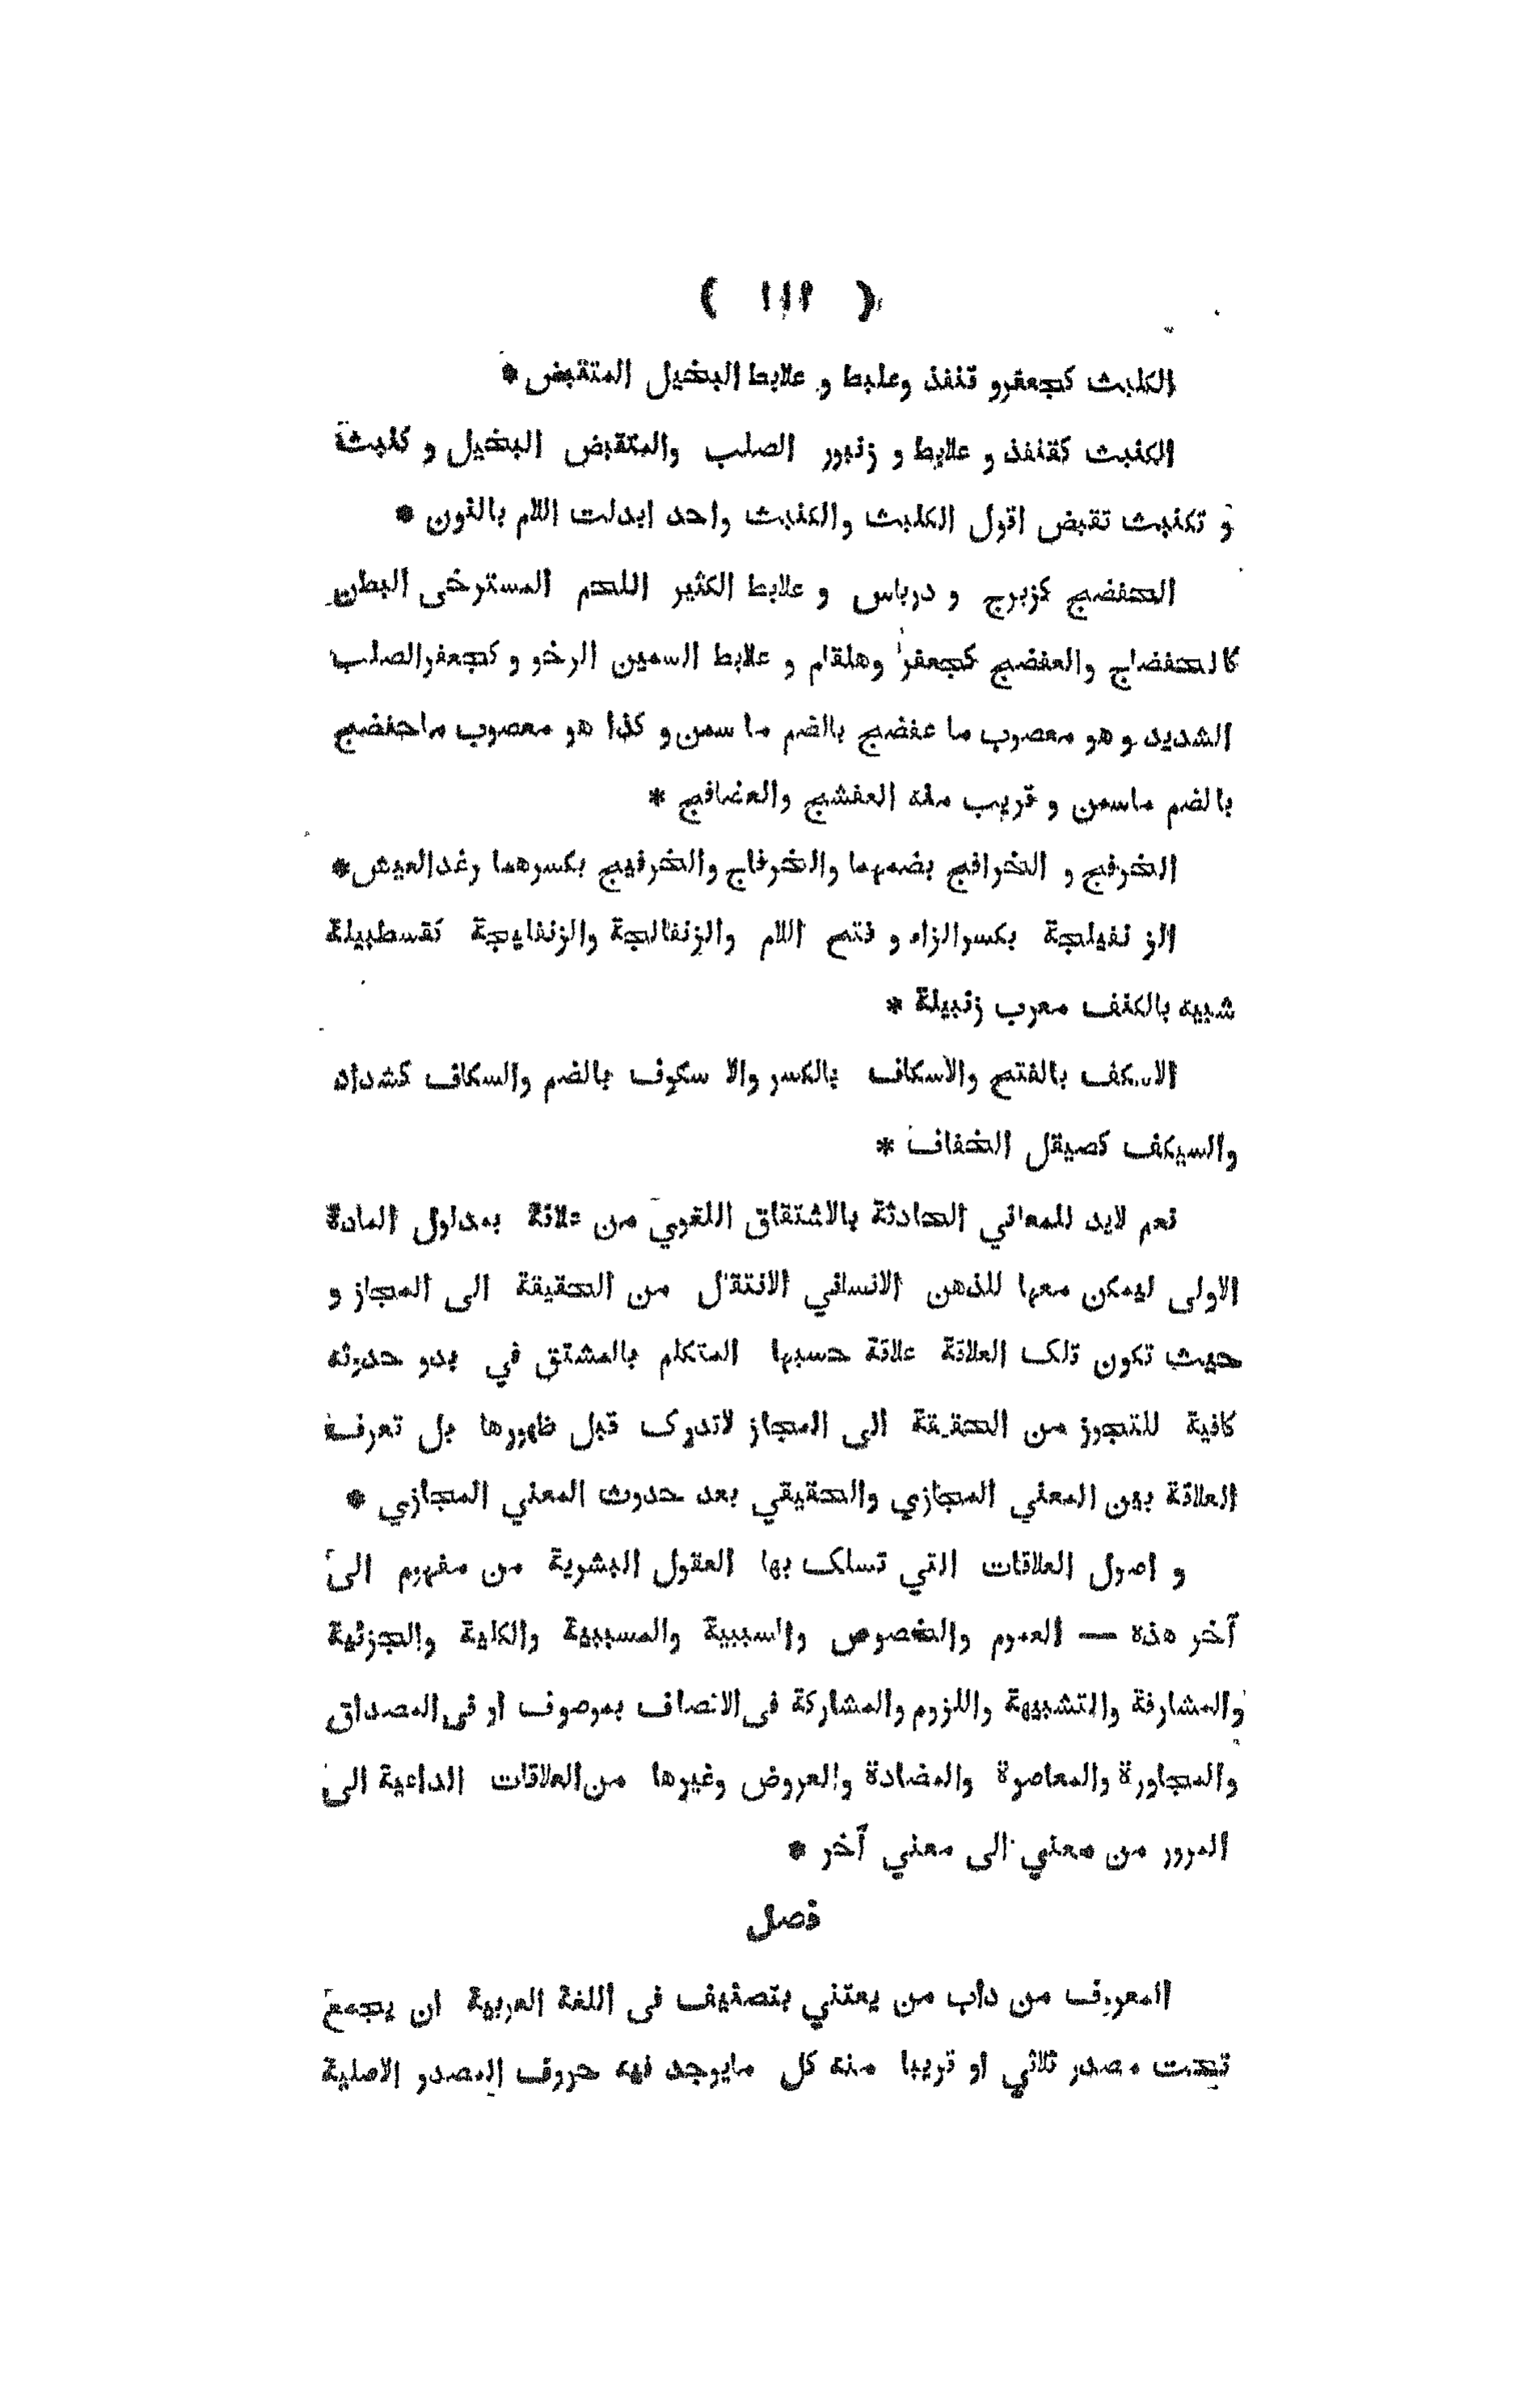 ( ١١٩ )
الكلبث كجعفرو قنفذ وعلبط و علابط البخيل المتقبض *
الكنبث كقنفذ و علابط و زنبور الصلب والمتقبض البخيل و كنبث
و تكنبث تقبض اقول الكلبث والكنبث واحد ابدلت اللام بالنون *
الحفضج كزبرج و درباس و علابط الكثير اللحم المسترخى البطن
كالحفضاج والعفضج كجعفر وهلقام و علابط السمين الرخو و كجعفرالصلب
الشديد و هو معصوب ما عفضج بالضم ما سمن و كذا هو معصوب ماحفضج
بالضم ماسمن و قريب منه العفشج والعضافج *
الخرفج و الخرافج بضمهما والخرفاج والخرفيج بكسرهما رغدالعيش *
الز نفيلجة بكسرالزاء و فتح اللام والزنفالجة والزنفايجة كقسطبيلة
شبيه بالكنف معرب زنبيلة *
الاسكف بالفتح والاسكاف بالكسر والا سكوف بالضم والسكاف كشداد
والسيكف كصيقل الخفاف *
نعم لابد للمعاني الحادثة بالاشتقاق اللغوي من علاقة بمدلول المادة
الاولى ليمكن معها للذهن الانساني الانتقال من الحقيقة الى المجاز و
حيث تكون تلك العلاقة علاقة حسبها المتكلم بالمشتق في بدو حدوثه
كافية للتجوز من الحقيقة الى المجاز لاتدرك قبل ظهورها بل تعرف
العلاقة بين المعني المجازي والحقيقي بعد حدوث المعني المجازي *
و اصول العلاقات التي تسلك بها العقول البشرية من مفهوم الى
آخر هذه — العموم والخصوص والسببية والمسببية والكلية والجزئية
والمشارفة والتشبيهة واللزوم والمشاركة فى الاتصاف بموصوف او فى المصداق
والمجاورة والمعاصرة والمضادة والعروض وغيرها من العلاقات الداعية الى
المرور من معني الى معني آخر *
فصل
المعروف من داب من يعتني بتصنيف فى اللغة العربية ان يجمع
تحت مصدر ثلاثي او قريبا منه كل مايوجد فيه حروف المصدر الاصلية